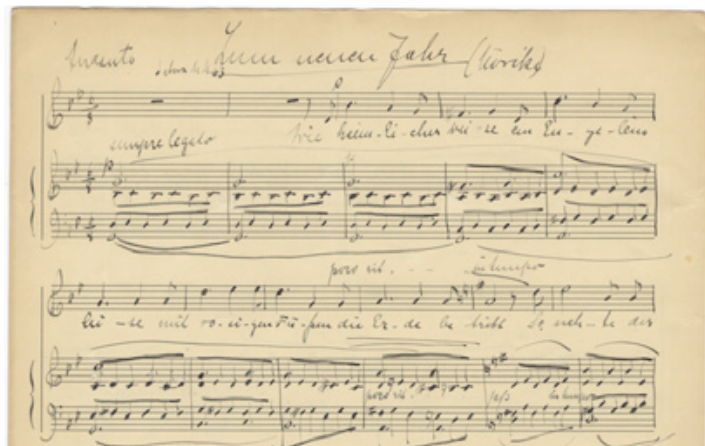 Zum neuen Jahr (Mörike)
sempre legato
Wie heim-li-cher wei-se ein En-ge-lein
poco rit. - - - in tempo
lei-se mit ro-si-gen Fü-ßen die Er-de be-tritt So nah-te der
poco rit. in tempo